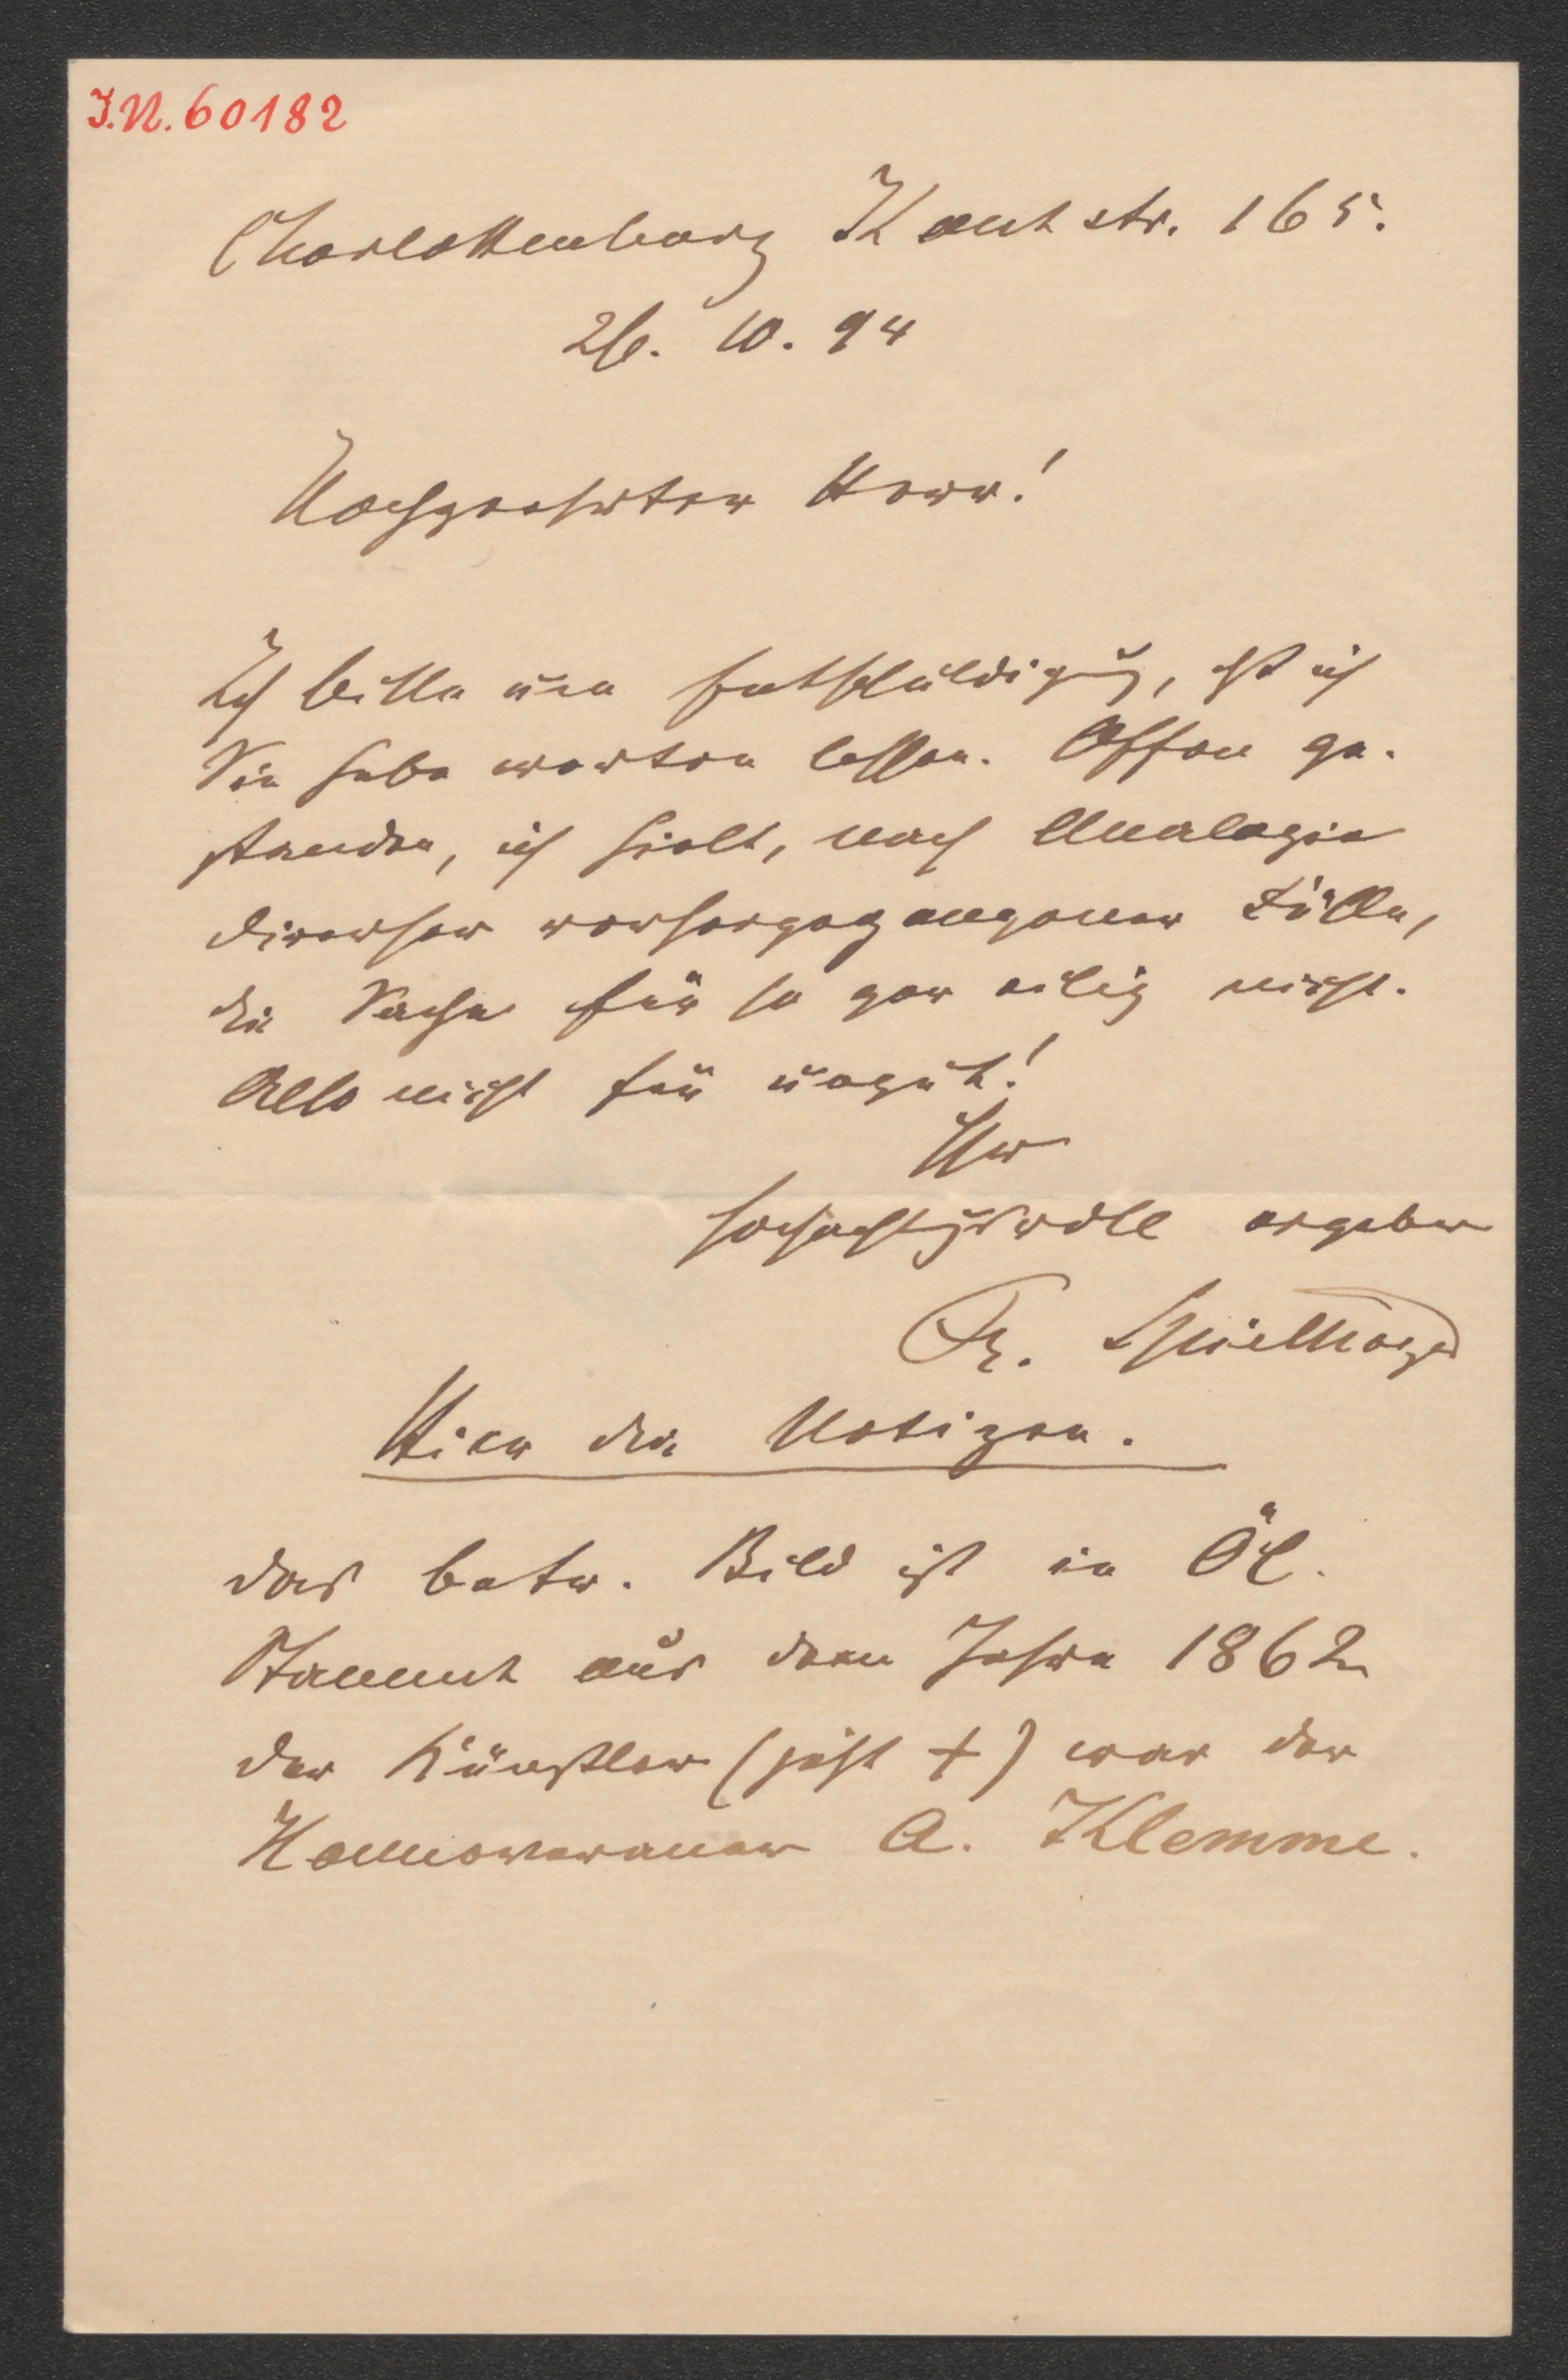 I.N. 60182
Charlottenburg Kantstr. 165.
26. 10. 94
Hochgeehrter Herr!
Ich bitte um Entschuldigung, daß ich
Sie habe warten lassen. Offen ge-
standen, ich hielt, nach Analogie
diverser vorhergegangener Fälle,
die Sache für so gar eilig nicht.
Also nicht für ungut!
Ihr
hochachtungsvoll ergebener
Fr. Spielhagen
Hier die Notizen.
Das betr. Bild ist in Öl.
Stammt aus dem Jahre 1862
Der Künstler (jetzt †) war der
Hannoveraner A. Klemme.